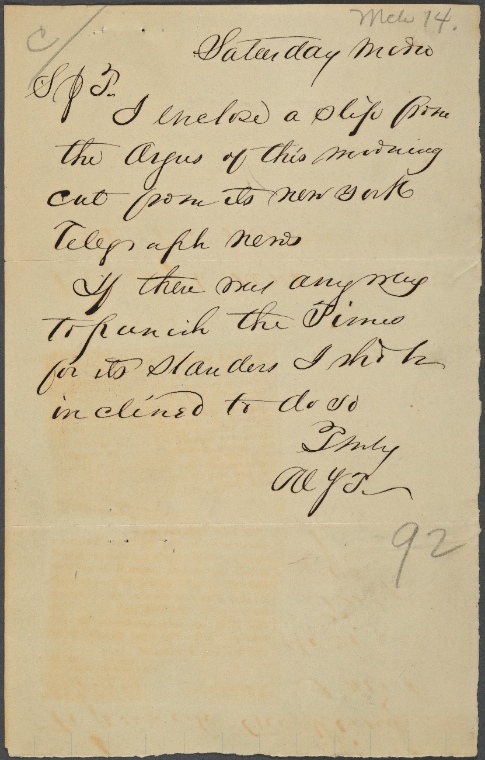 Mch 14.
C/
Saturday Morn
S J T.
I enclose a slip from
the Argus of this morning
cut from its new york
Telegraph news
If there was any way
to punish the Times
for its slanders I shd be
inclined to do so
Truly
92